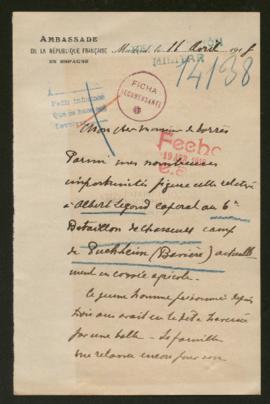 AMBASSADE
DE LA RÉPUBLIQUE FRANÇAISE
EN ESPAGNE
le 11 Avril 191
MILITAR
14138
FICHA
Mon cher Monsieur de Torrès
Fecha
Parmi mes nombreuses
importunités figure celle relative
à Albert Legond caporal au 6e
Bataillon de chasseurs camp
de Puchheim (Bavière) actuelle
ment en corvée agricole.
Ce jeune homme prisonnier depuis
trois ans avait eu la tête traversée
par une balle. Sa famille
me relance encore pour son